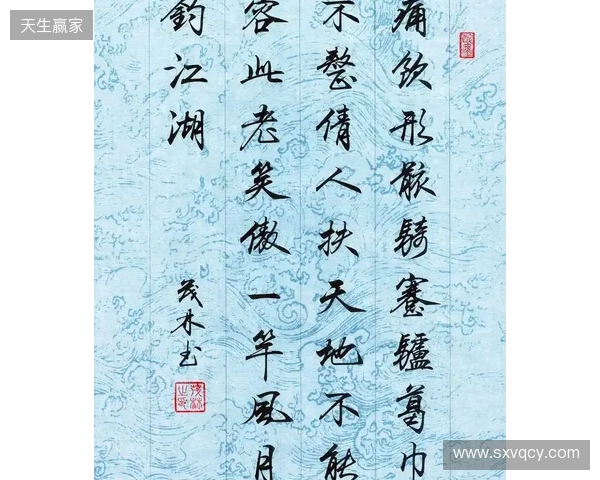 天生赢家
痛飲形骸騎蹇驢葛巾
不整倩人扶天地不能
容此老笑傲一竿風月
釣江湖
茂林书
www.sxvqcy.com